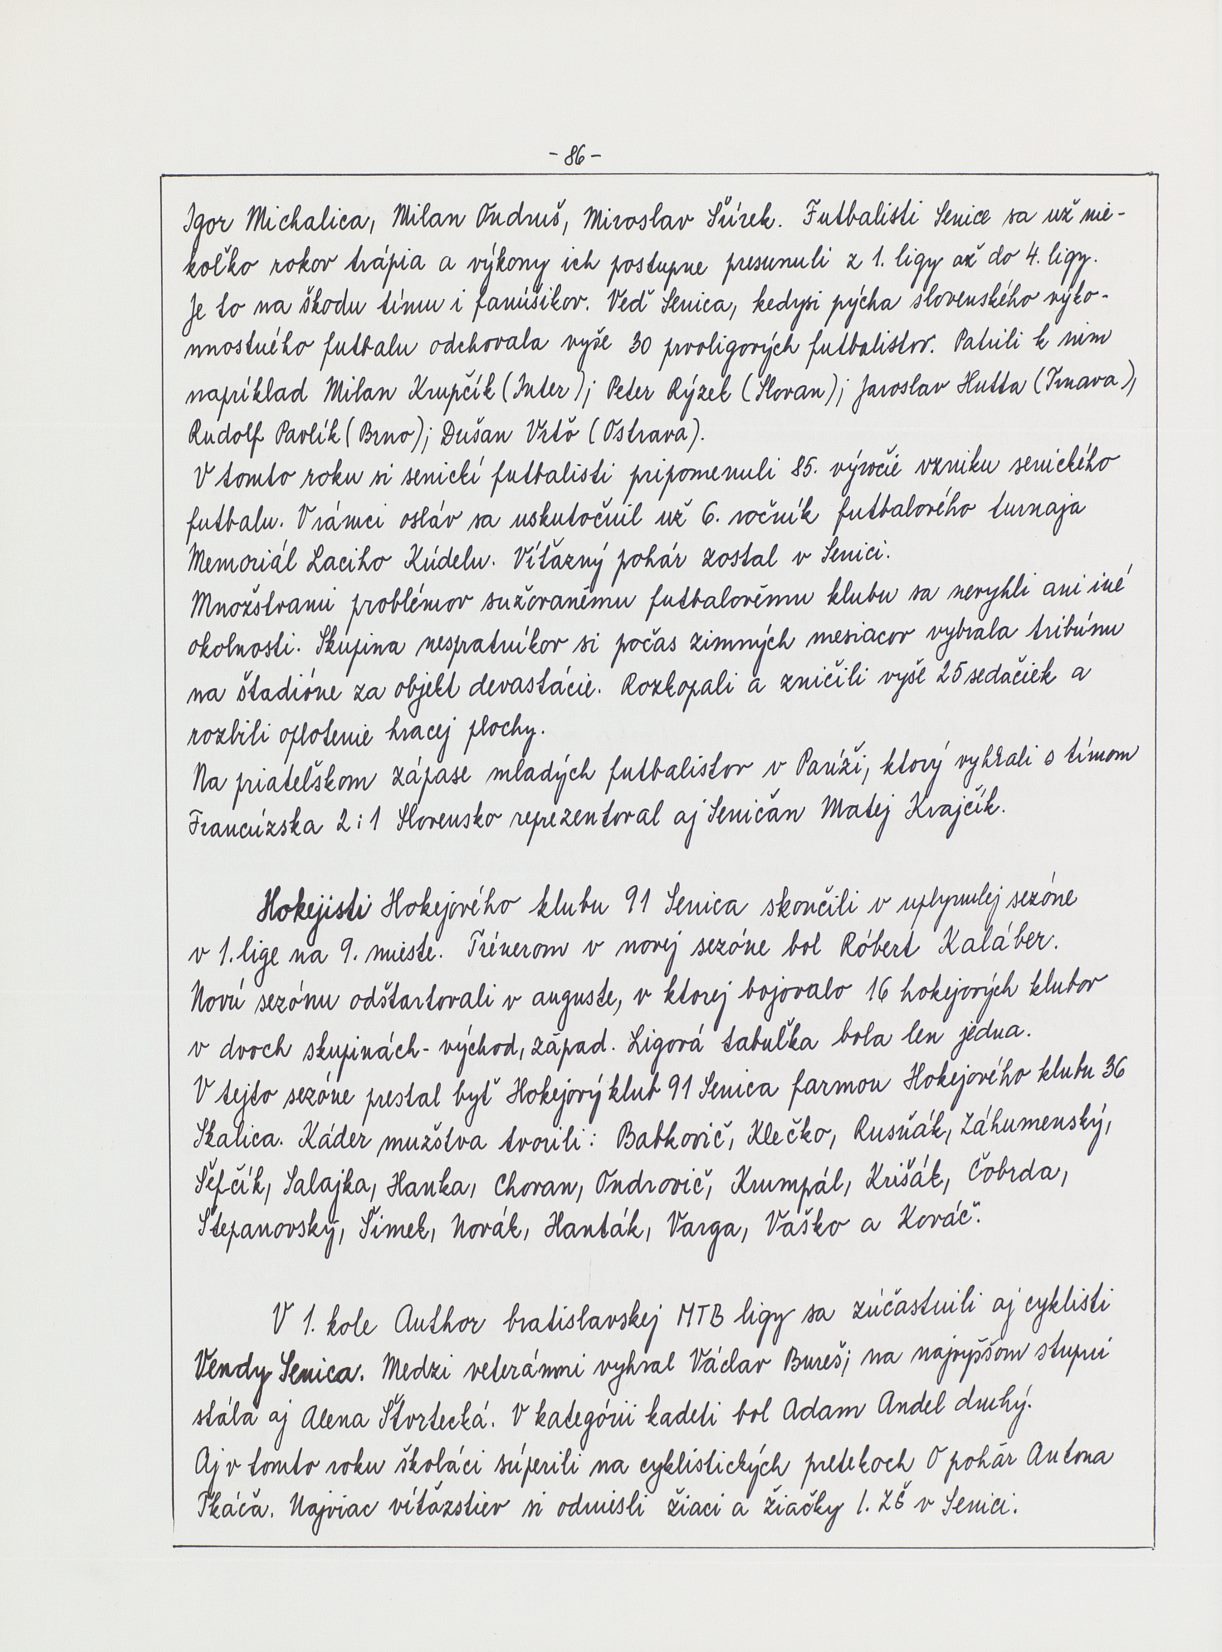 - 86 -
Igor Michalica, Milan Ondruš, Miroslav Šúrek. Futbalisti Senice sa už nie-
koľko rokov trápia a výkony ich postupne presunuli z 1. ligy až do 4. ligy.
Je to na škodu tímu i fanúšikov. Veď Senica, kedysi pýcha slovenského výko-
nnostného futbalu odchovala vyše 30 prvoligových futbalistov. Patrili k nim
napríklad Milan Krupčík (Inter); Peter Rýzek (Slovan); Jaroslav Hutta (Trnava);
Rudolf Pavlík (Brno); Dušan Vrťo (Ostrava).
V tomto roku si senickí futbalisti pripomenuli 85. výročie vzniku senického
futbalu. V rámci osláv sa uskutočnil už 6. ročník futbalového turnaja
Memoriál Laciho Kúdelu. Víťazný pohár zostal v Senici.
Množstvami problémov sužovanému futbalovému klubu sa nevyhli ani iné
okolnosti. Skupina nespratníkov si počas zimných mesiacov vybrala tribúnu
na štadióne za objekt devastácie. Rozkopali a zničili vyše 25 sedačiek a
rozbili oplotenie hracej plochy.
Na priateľskom zápase mladých futbalistov v Paríži, ktorý vyhrali s tímom
Francúzska 2:1 Slovensko reprezentoval aj Seničan Matej Krajčík.
Hokejisti Hokejového klubu 91 Senica skončili v uplynulej sezóne
v 1. lige na 9. mieste. Trénerom v novej sezóne bol Róbert Kaláber.
Novú sezónu odštartovali v auguste, v ktorej bojovalo 16 hokejových klubov
v dvoch skupinách - východ, západ. Ligová tabuľka bola len jedna.
V tejto sezóne prestal byť Hokejový klub 91 Senica farmou Hokejového klubu 36
Skalica. Káder mužstva tvorili: Babkovič, Klečko, Rusňák, Záhumenský,
Šefčík, Salajka, Hanka, Chovan, Ondrovič, Krumpál, Krišák, Čobrda,
Štepanovský, Šimek, Novák, Hanták, Varga, Vaško a Kováč.
V 1. kole Author bratislavskej MTB ligy sa zúčastnili aj cyklisti
Vendy Senica. Medzi veteránmi vyhral Václav Bureš; na najvyššom stupni
stála aj Alena Štvrtecká. V kategórii kadeti bol Adam Andel druhý.
Aj v tomto roku školáci súperili na cyklistických pretekoch O pohár Antona
Tkáča. Najviac víťazstiev si odniesli žiaci a žiačky I. ZŠ v Senici.